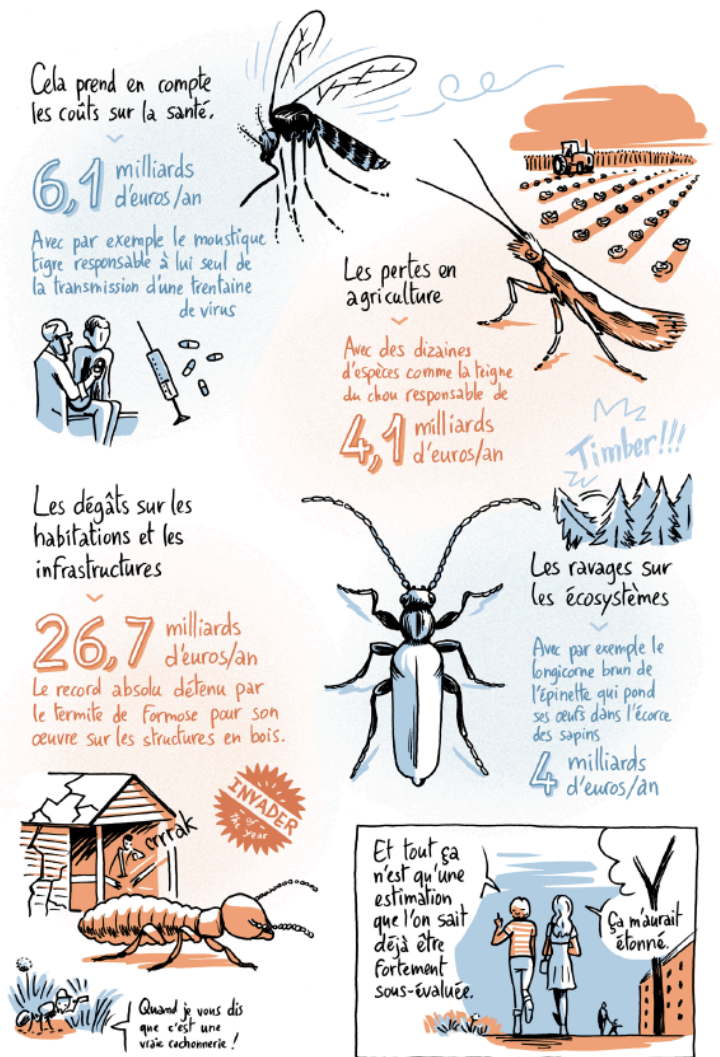 Cela prend en compte
les coûts sur la santé.
6,1 milliards
d'euros/an
Avec par exemple le moustique
tigre responsable à lui seul de
la transmission d'une trentaine
de virus
Les pertes en
agriculture
Avec des dizaines
d'espèces comme la teigne
du chou responsable de
4,1 milliards
d'euros/an
Timber!!!
Les dégâts sur les
habitations et les
infrastructures
26,7 milliards
d'euros/an
Le record absolu détenu par
le termite de Formose pour son
œuvre sur les structures en bois.
Les ravages sur
les écosystèmes
Avec par exemple le
longicorne brun de
l'épinette qui pond
ses œufs dans l'écorce
des sapins
4 milliards
d'euros/an
INVADER
of
the year
crrrak
Quand je vous dis
que c'est une
vraie cochonnerie !
Et tout ça
n'est qu'une
estimation
que l'on sait
déjà être
fortement
sous-évaluée.
Ça m'aurait
étonné.